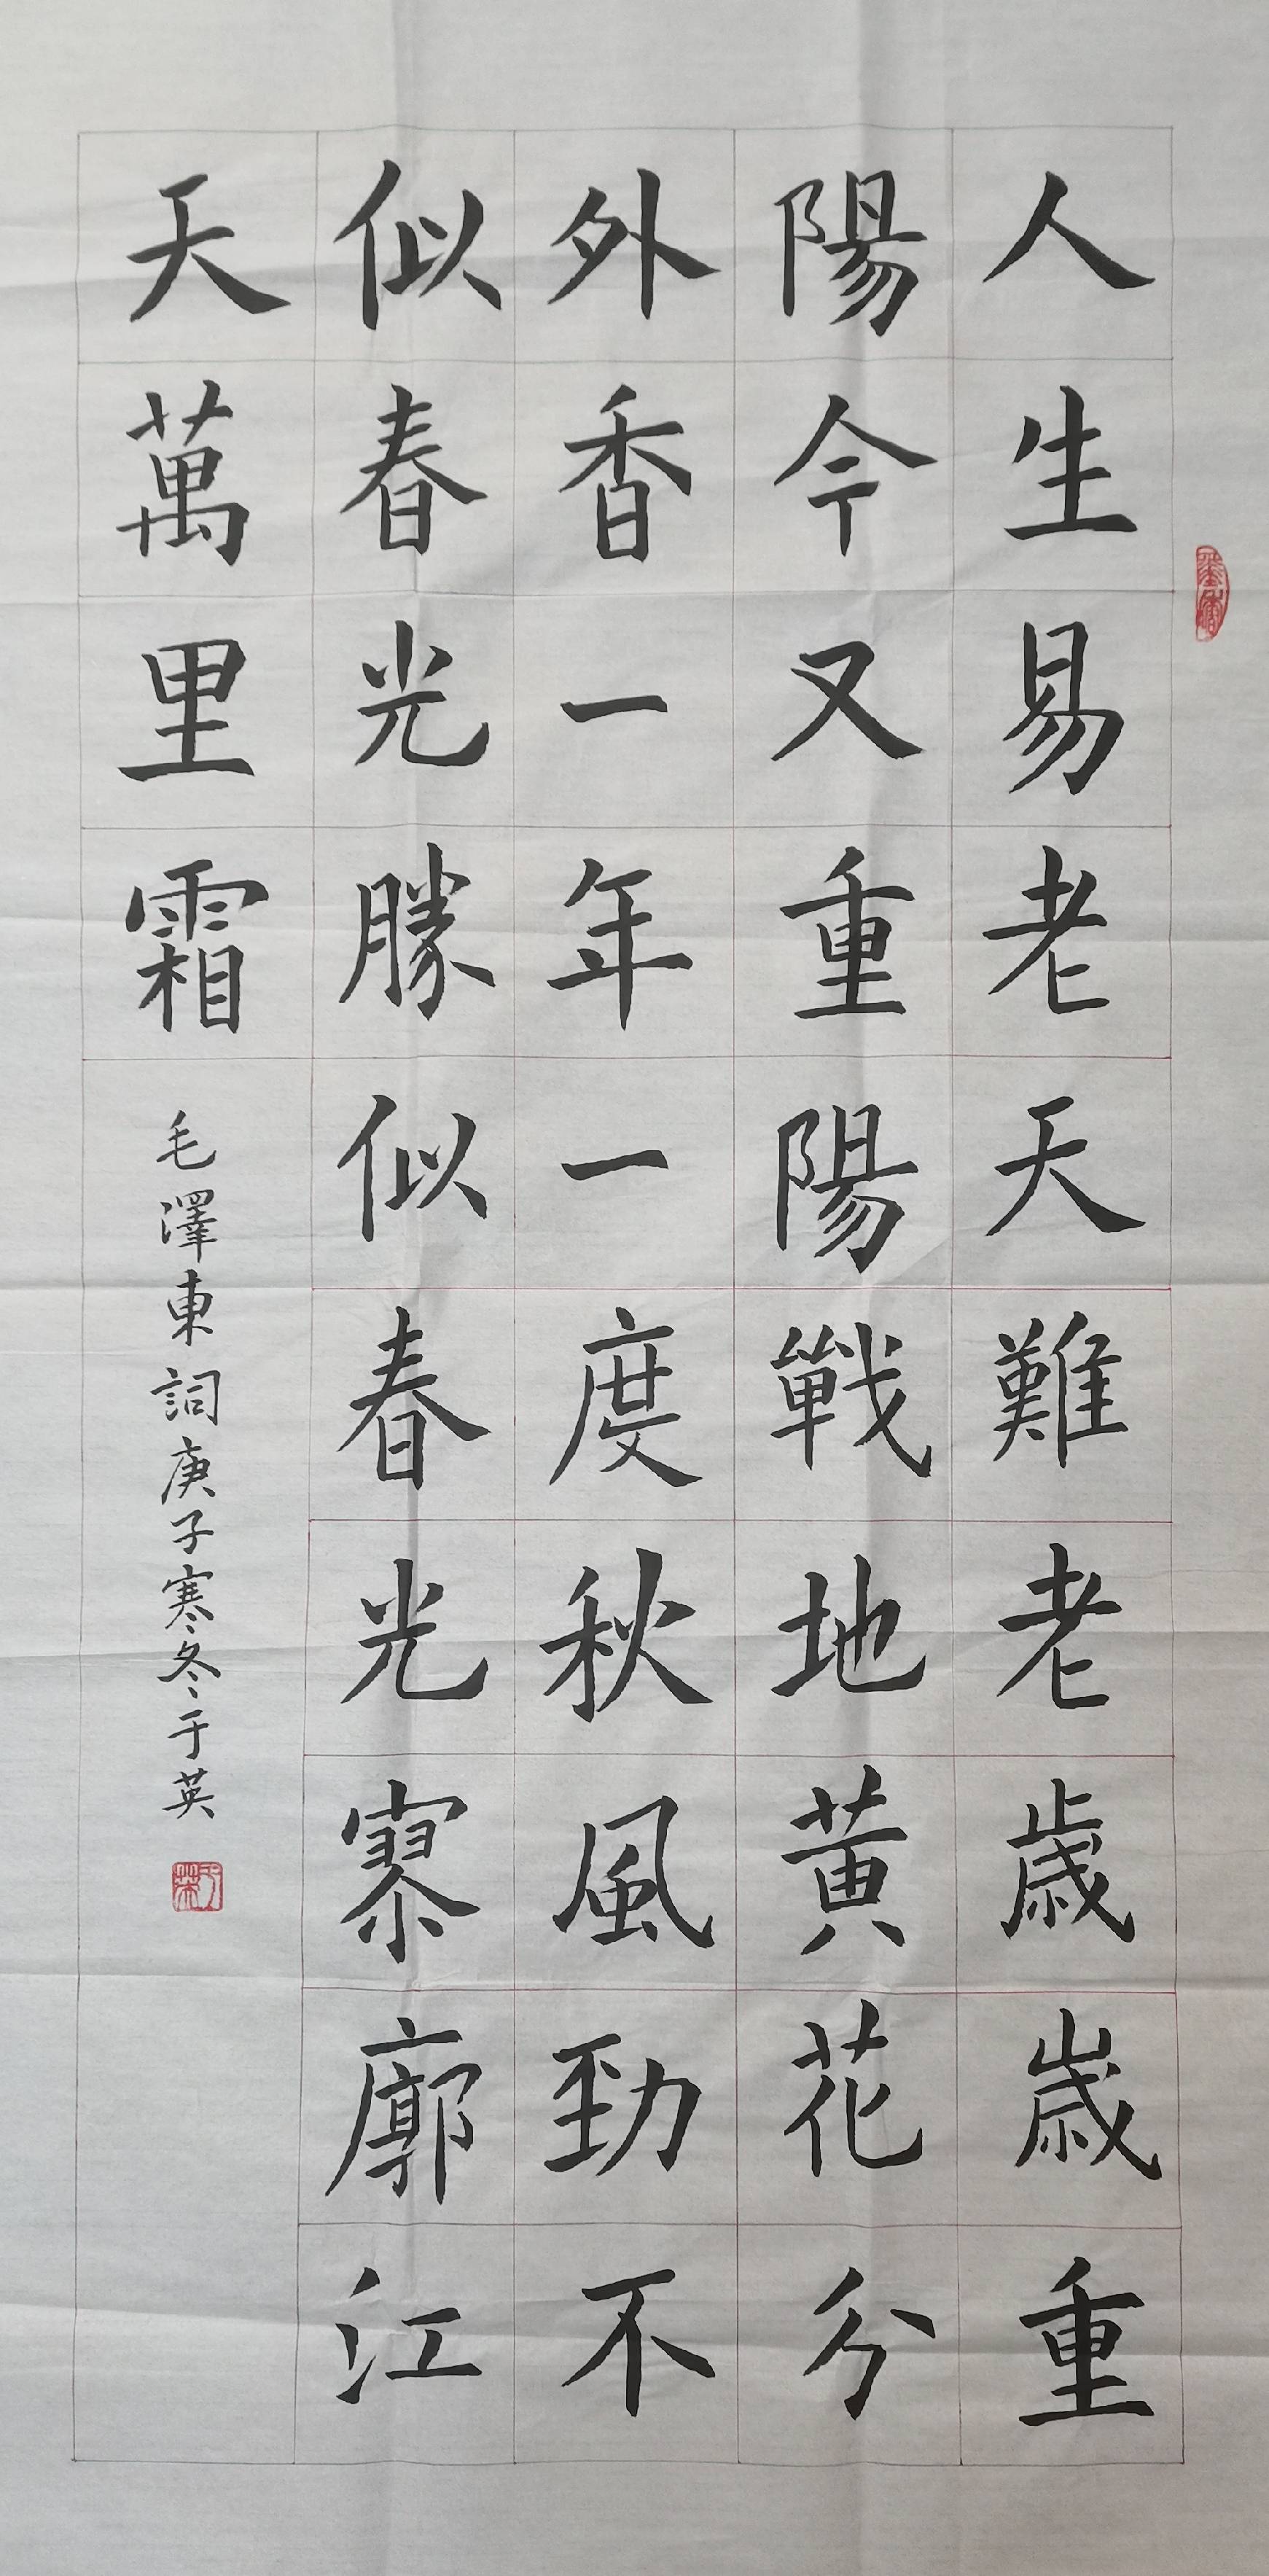 人生易老天難老歲歲重
陽今又重陽戰地黄花分
外香一年一度秋風勁不
似春光勝似春光寥廓江
天萬里霜
毛澤東詞庚子寒冬于英